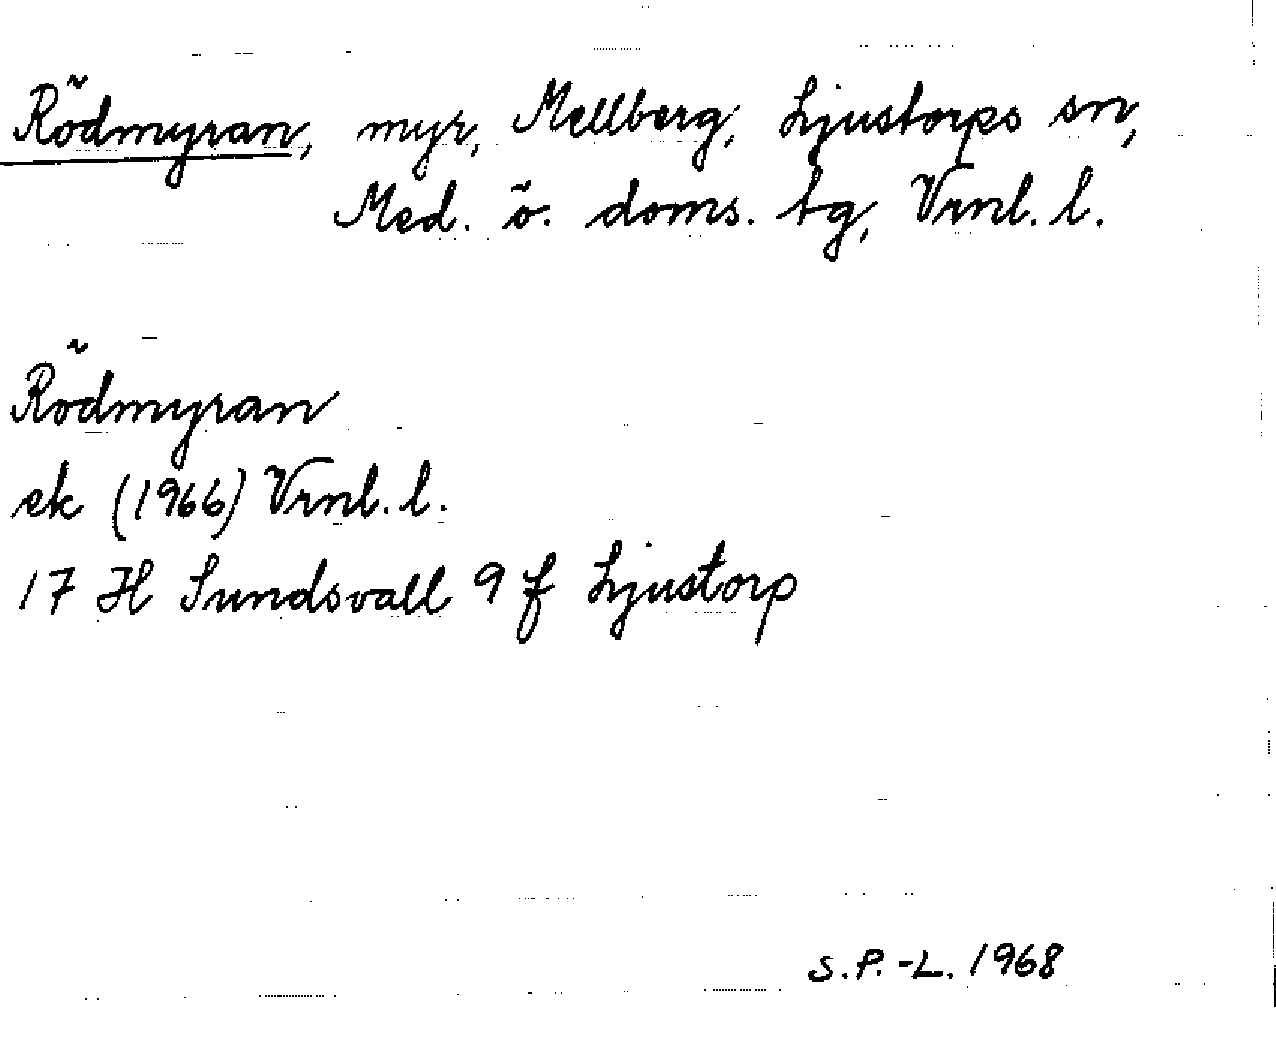 Rödmyran, myr, Mellberg, Ljustorps sn,
Med. ö. doms. tg, Vrnl. l.
Rödmyran
ek (1966) Vrnl. l.
17 H Sundsvall 9 f Ljustorp
S.P.-L. 1968